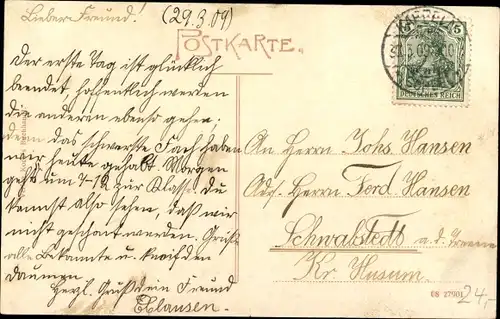 Lieber Freund! (29.3.09)
POSTKARTE.
Der erste Tag ist glücklich
beendet, hoffentlich werden
die anderen ebenso gehen,
denn das schwerste Fach haben
wir heute gehabt. Morgen
geht um 7-12 zur Klasse. Du
kannst also sehen, daß wir
nicht geschont werden. Grüße
alle Bekannte u. kneif den
Daumen
Herzl. Gruß Dein Freund
Clausen.
5
DEUTSCHES REICH
An Herrn Johs. Hansen
Adr. Herrn Ferd. Hansen
Schwabstedt a. d. Treene
Kr. Husum.
08 27901
24,-